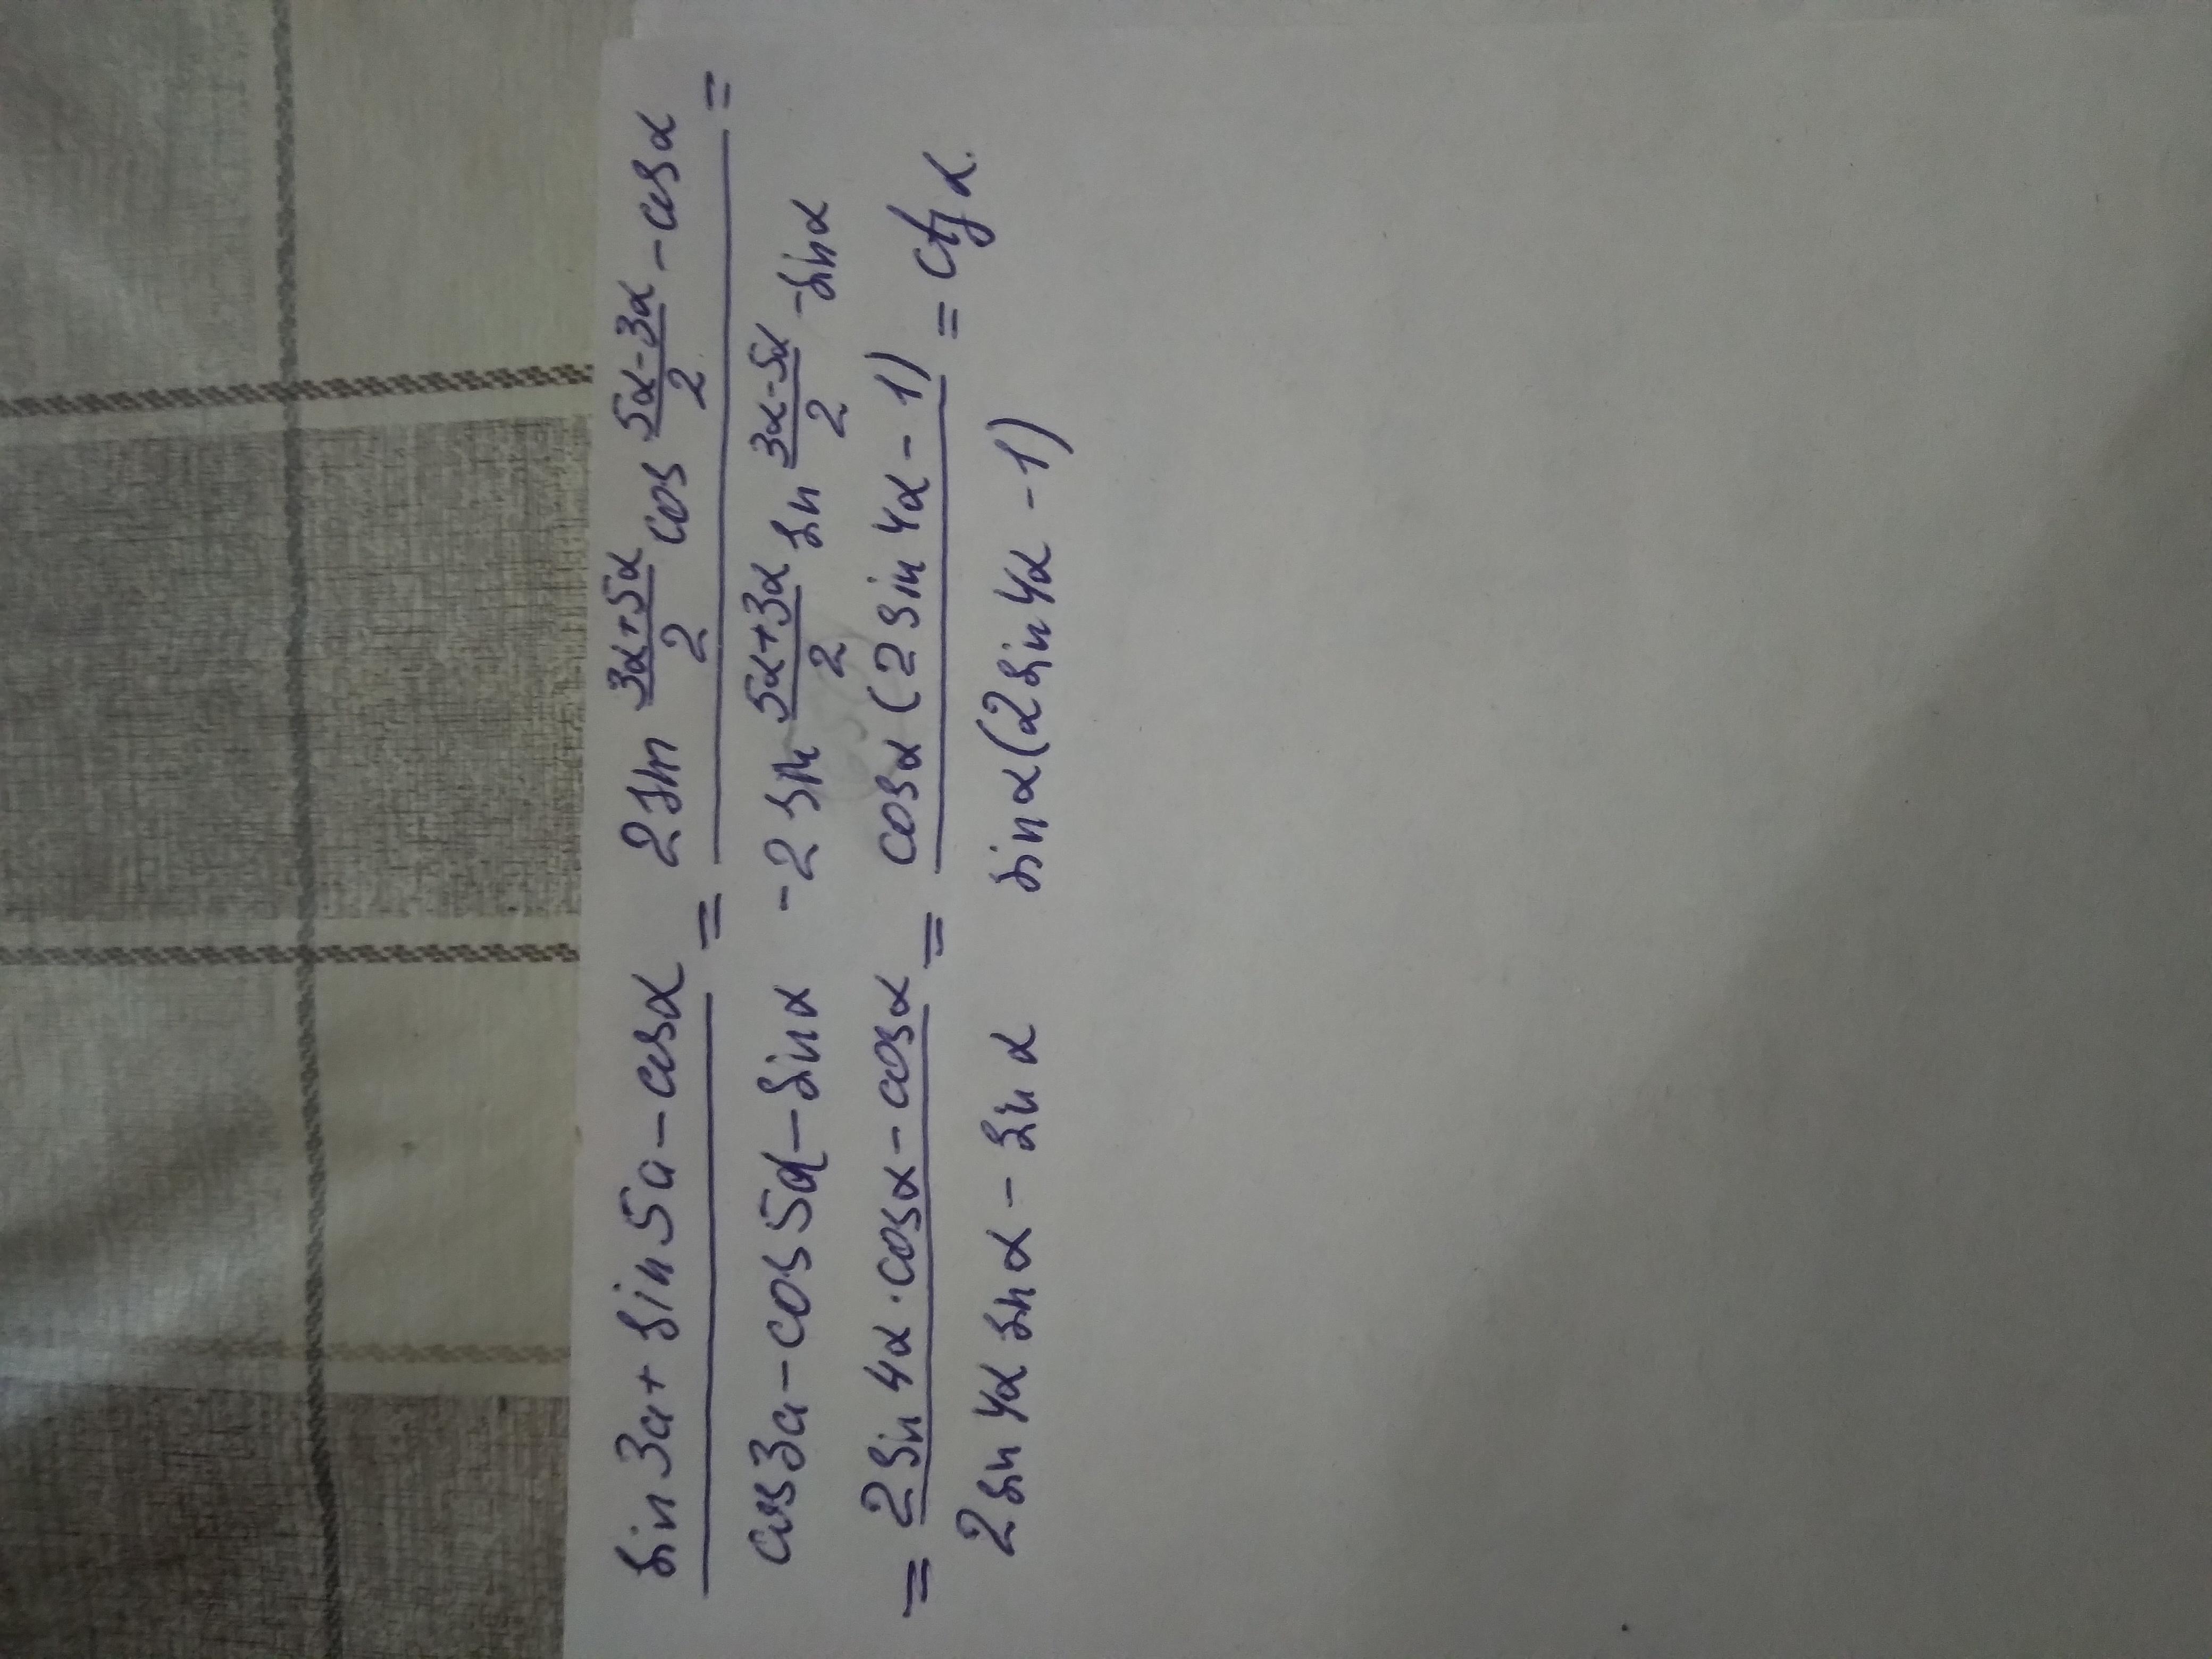 sin3a + sin5a - cosα / cos3a - cos5α - sinα = 2sin (3α+5α)/2 cos (5α-3α)/2 - cosα / -2sin (5α+3α)/2 sin (3α-5α)/2 - sinα =
= 2sin4α · cosα - cosα / 2sin4α sinα - sinα = cosα(2sin4α - 1) / sinα(2sin4α - 1) = ctgα.